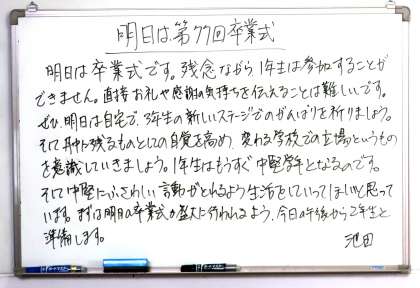 明日は第77回卒業式
明日は卒業式です。残念ながら1年生は参加することが
できません。直接お礼や感謝の気持ちを伝えることは難しいです。
ぜひ、明日は自宅で、3年生の新しいステージでのがんばりを祈りましょう。
そして、中に残るものとしての自覚を高め、変わる学校での立場というもの
を意識していきましょう。1年生はもうすぐ中堅学年となるのです。
そして中堅にふさわしい言動がとれるよう生活をしていってほしいと思って
います。まずは明日の卒業式が盛大に行われるよう、今日の午後から2年生と
準備します。
池田